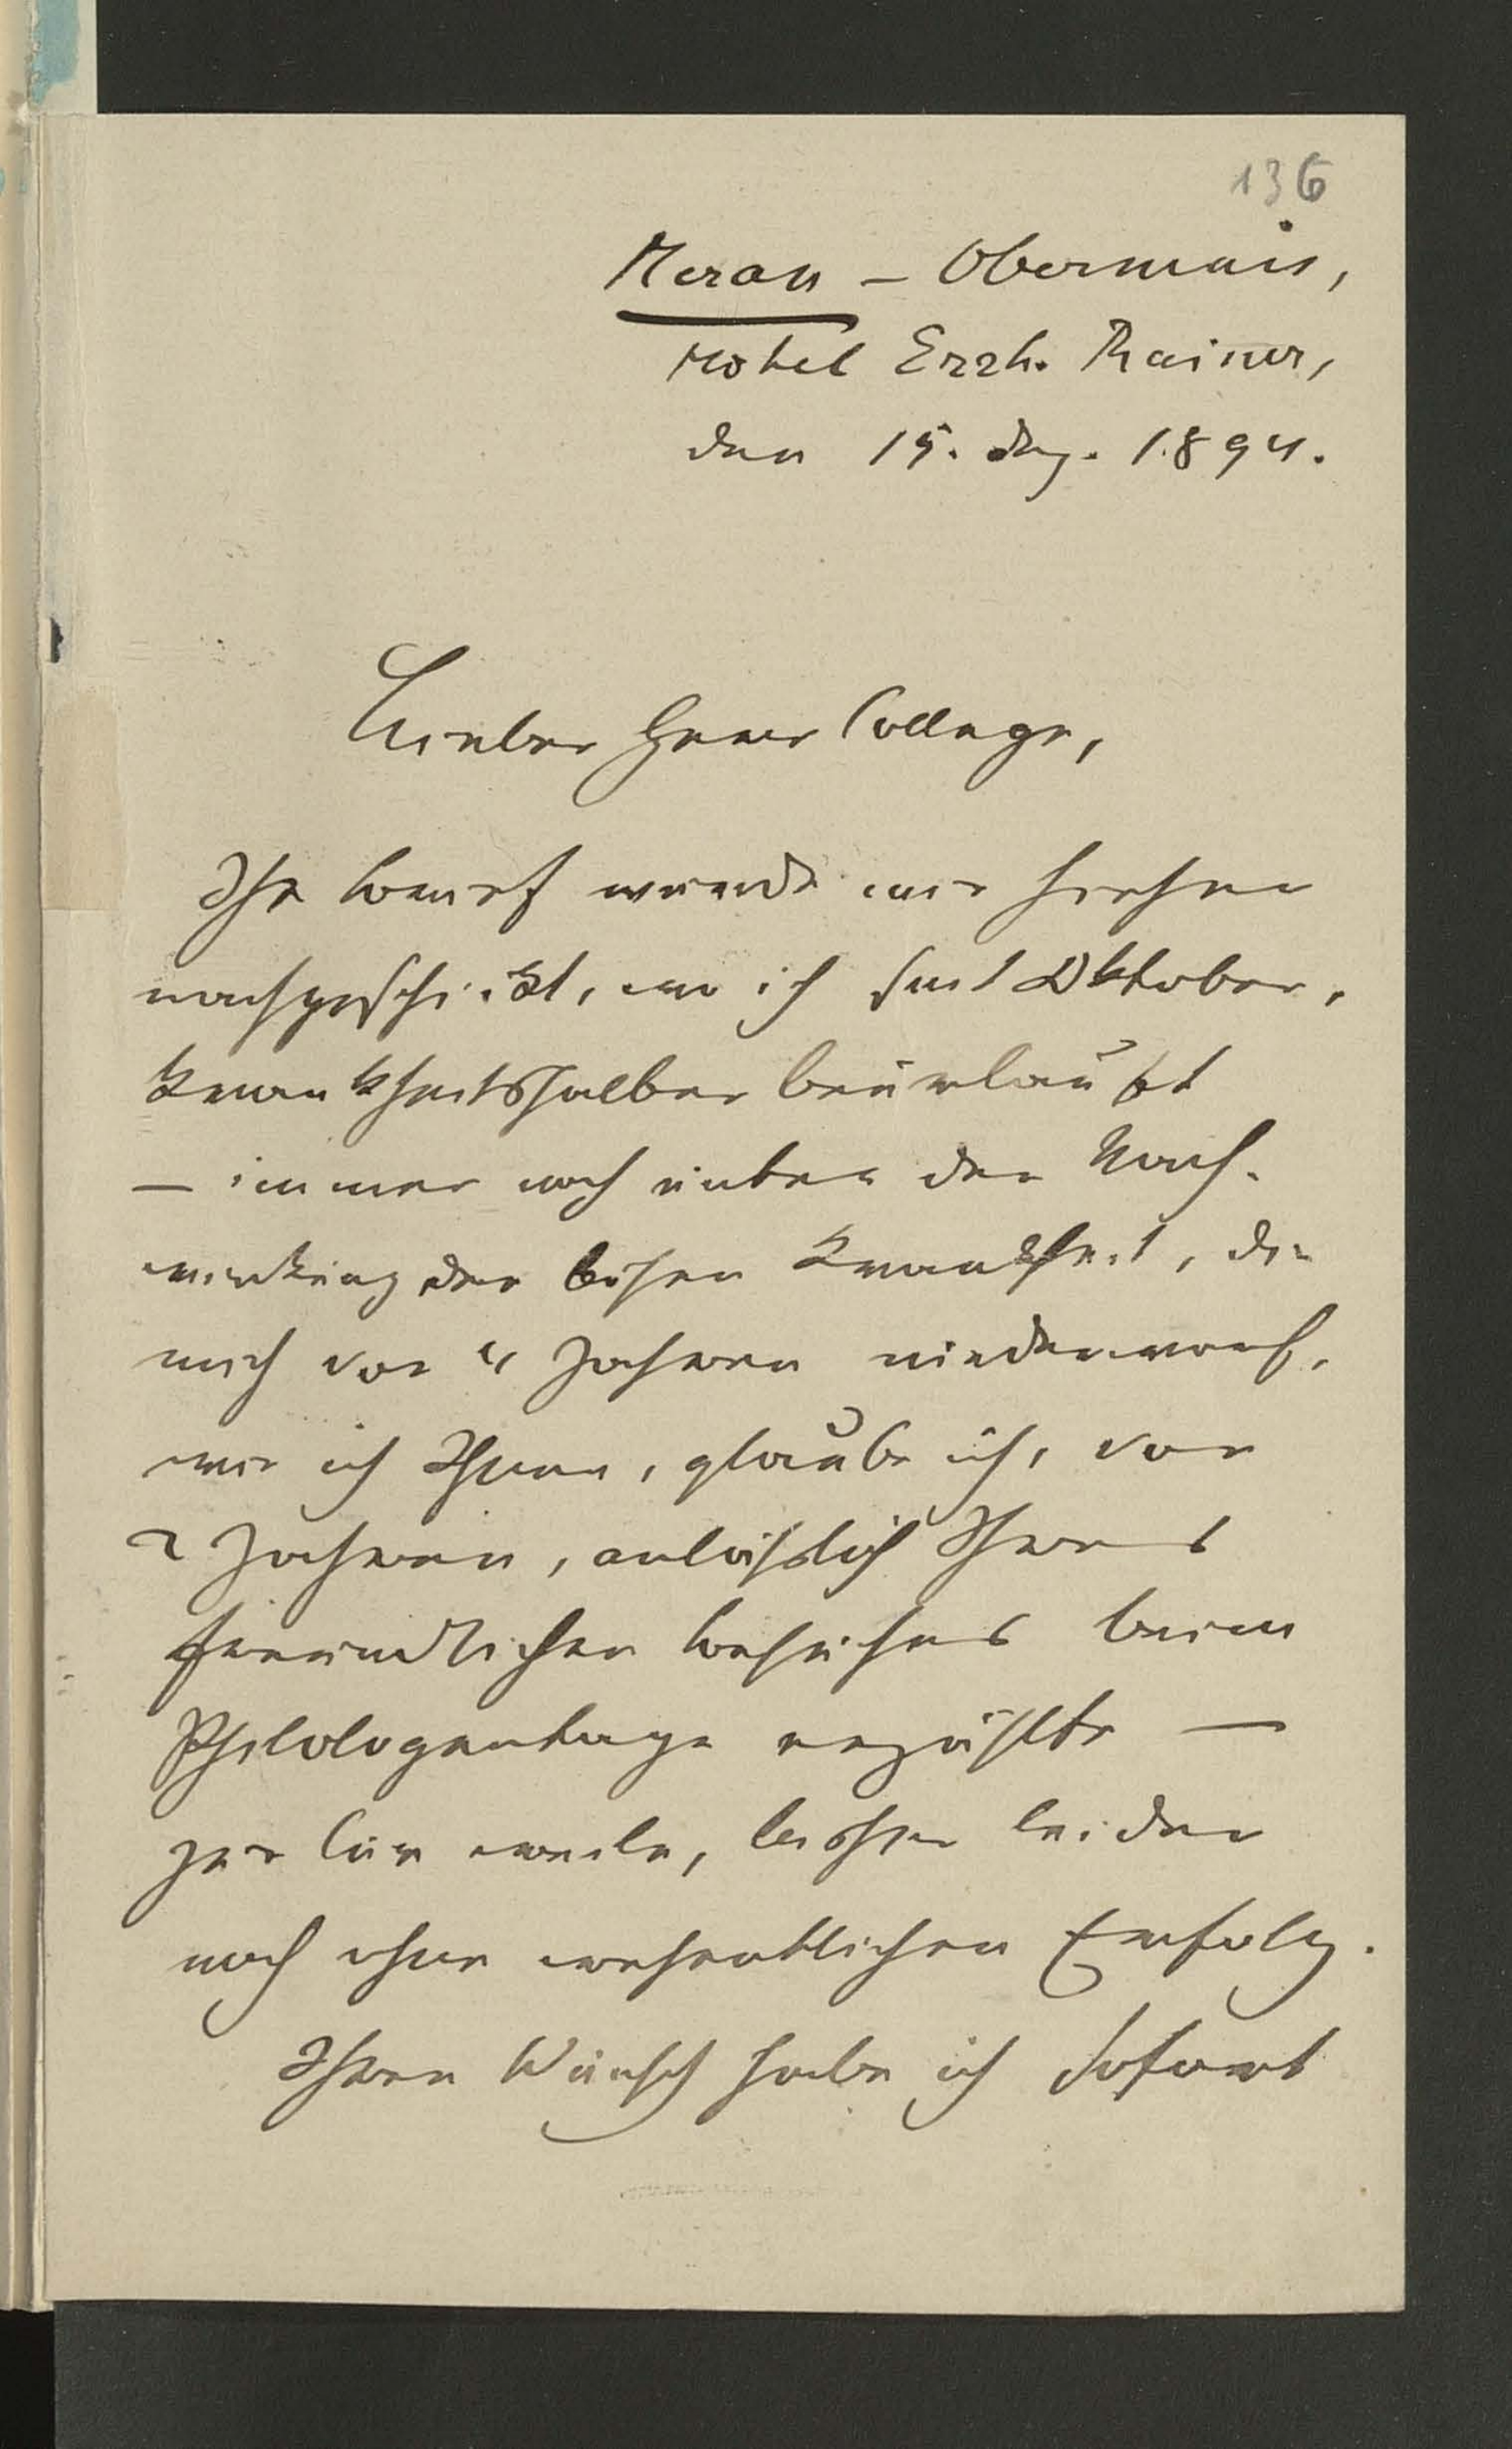 136
Meran – Obermais,
Hotel Erzh. Rainer,
den 15. Dez. 1894.
Lieber Herr College,
Ihr Brief wurde mir hieher
nachgeschickt, wo ich seit Oktober,
krankheitshalber beurlaubt
– immer noch unter der Nach-
wirkung der bösen Krankheit, die
mich vor 4 Jahren niederwarf,
wie ich Ihnen, glaube ich, vor
2 Jahren, anläßlich Ihres
freundlichen Besuches beim
Philologentage erzählte –
zur Cur weile, bisher leider
noch ohne wesentlichen Erfolg.
Ihren Wunsch habe ich sofort